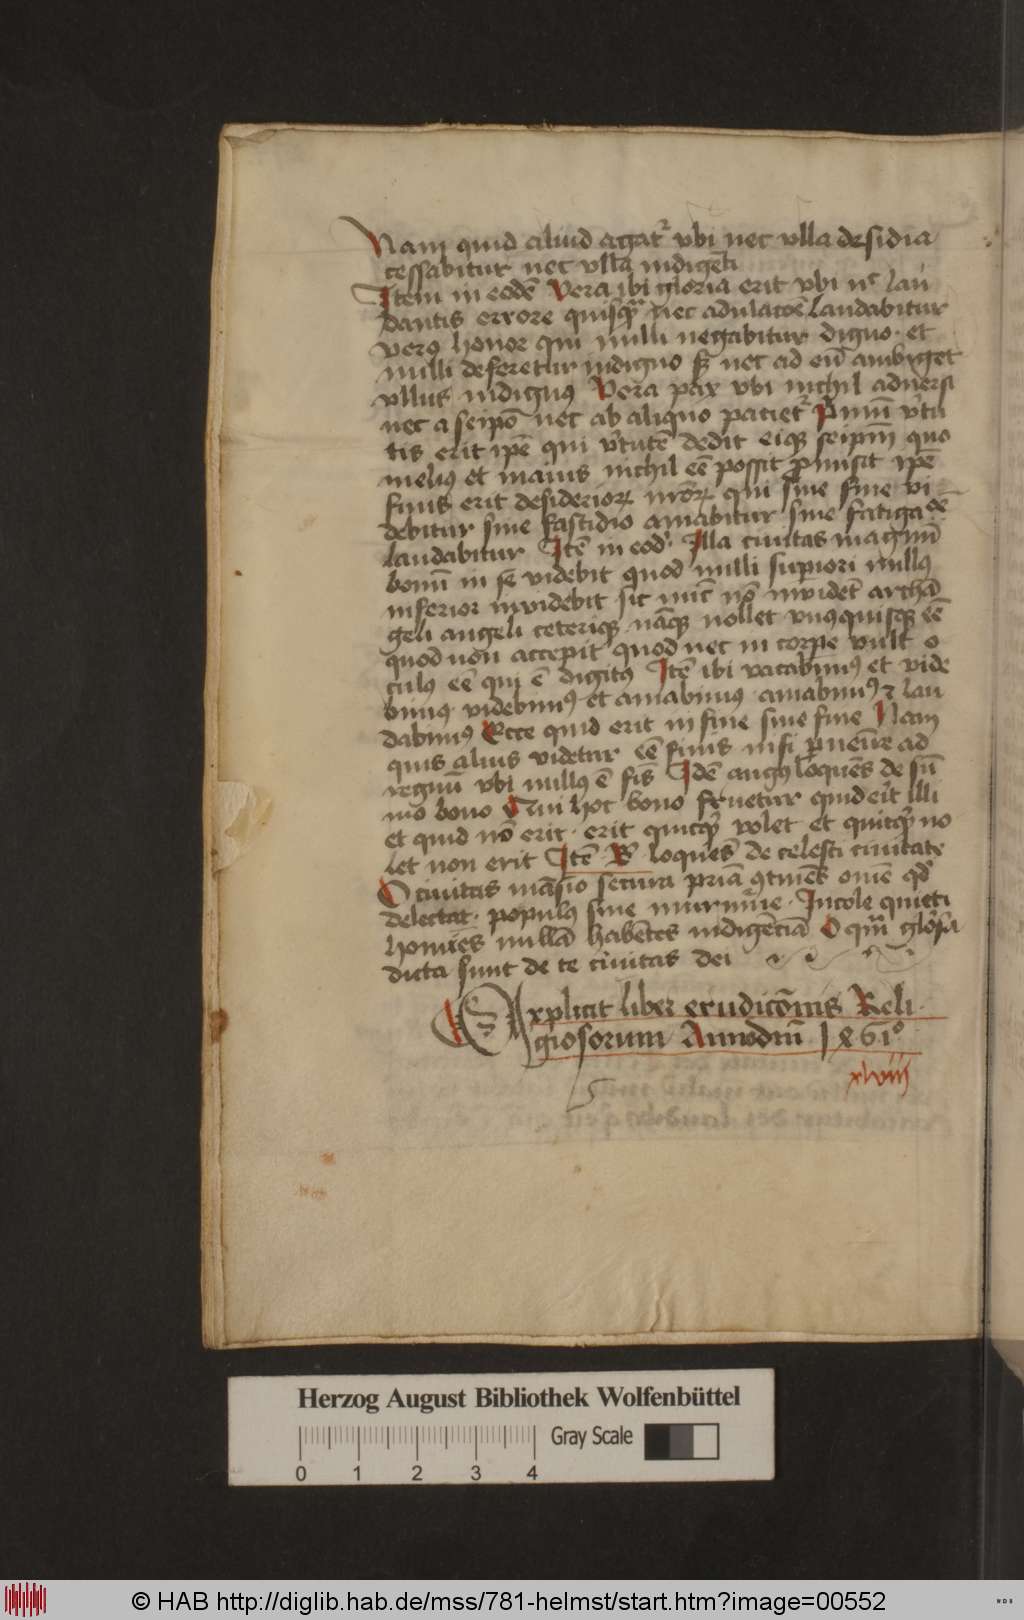 Nam quid aliud agat᷑ vbi nec vlla desidia
cessabitur nec vlla indigēti
Item in eodē Vera ibi gloria erit vbi nͨ lau
dantis errore quisqͣ nec adulacōē laudabitur
verꝰ honor qui nulli negabitur digno · et
nulli deferetur indigno sꝫ nec ad eū ambiget
vllus indignus Vera pax vbi nichil aduersi
nec a seipō nec ab aliquo paciet᷑ P̄miū v̾tu
tis erit ip̄e qui v̾tutē dedit eiqꝫ seip̄m quo
melius et maius nichil eē possit ꝓmisit ip̄e
finis erit desiderioꝝ nr̄oꝝ qui sine fine vi
debitur sine fastidio amabitur sine fatigacōē
laudabitur Itē in eod᷑ Illa ciuitas magnū
bonū in se videbit quod nulli supiori nullꝰ
inferior inuidebit sic nūc nō inuidēt archā
geli angeli ceteriqꝫ nāqꝫ nollet vnꝰquisqꝫ eē
quod non accepit quod nec in corpe vult o
culꝰ eē qui ē digitꝰ Itē ibi vacabimꝰ et vide
bimꝰ · videbimꝰ et amabimꝰ · amabimꝰ ⁊ lau
dabimꝰ Ecce quid erit in fine sine fine Nam
quis aliꝰ videtur eē finis nisi ꝑuenire ad
regnū vbi nullꝰ ē fīs Idē augꝰ loquēs de sū
mo bono Qui hoc bono fruetur quid erit illi
et quid nō erit · erit quicqͥd volet et quicqͥd no
let non erit Itē B̄ loquēs de celesti ciuitate
O ciuitas māsio secura pria ꝯtinēs om̄e qd̾
delectat · populꝰ sine murmure · Incole quieti
homīes nullā habētes indigēciā O qm̄ glōsa
dicta sunt de te ciuitas dei
Explicit liber erudicōnis Reli
giosorum Anno dn̄i 1861°
xlviij
Herzog August Bibliothek Wolfenbüttel
Gray Scale
0 1 2 3 4
© HAB http://diglib.hab.de/mss/781-helmst/start.htm?image=00552